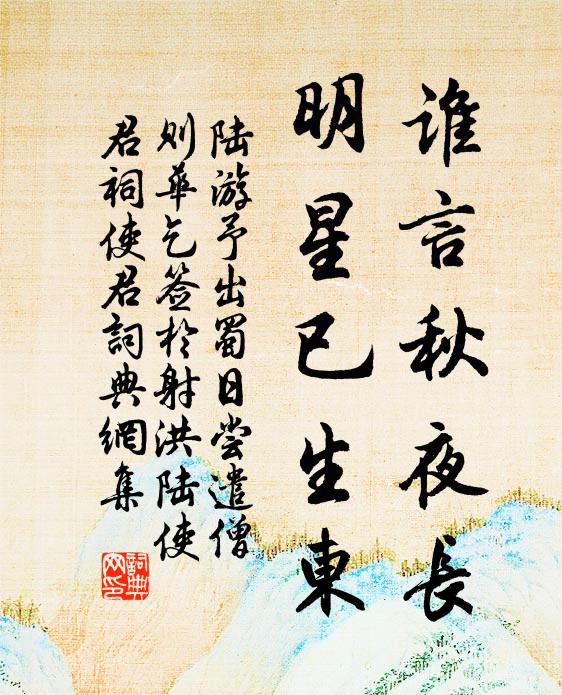 谁言秋夜長
明星已生東
陆游予出蜀日尝遣僧
则華乞签於射洪陆使
君祠使君詞典網集
詞典